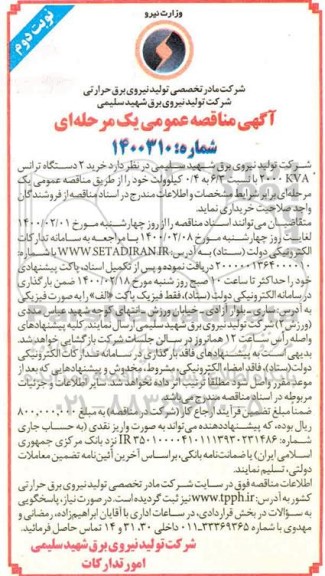 وزارت نیرو
نوبت دوم
شرکت مادر تخصصی تولید نیروی برق حرارتی
شرکت تولید نیروی برق شهید سلیمی
آگهی مناقصه عمومی یک مرحله‌ای
شماره: ۱۴۰۰۳۱۰
شرکت تولید نیروی برق شهید سلیمی در نظر دارد خرید ۲ دستگاه ترانس
۲۰۰۰ KVA با نسبت ۶/۳ به ۰/۴ کیلوولت خود را از طریق مناقصه عمومی یک
مرحله‌ای برابر شرایط مشخصات و اطلاعات مندرج در اسناد مناقصه از فروشندگان
واجد صلاحیت خریداری نماید.
متقاضیان می‌توانند اسناد مناقصه را از روز چهارشنبه مورخ ۱۴۰۰/۰۲/۰۱
لغایت روز چهارشنبه مورخ ۱۴۰۰/۰۲/۰۸ با مراجعه به سامانه تدارکات
الکترونیکی دولت (ستاد) به آدرس: WWW.SETADIRAN.IR با شماره:
دریافت نموده و پس از تکمیل اسناد، پاکت پیشنهادی
خود را حداکثر تا ساعت ۱۰ صبح روز شنبه مورخ ۱۴۰۰/۰۲/۱۸ ضمن بارگذاری
در سامانه الکترونیکی دولت (ستاد)، فقط فیزیک پاکت «الف» را به صورت فیزیکی
به آدرس ساری، بلوار آزادی، خیابان ورزش، انتهای کوچه شهید عباس مددی
(ورزش ۲) شرکت تولید نیروی برق شهید سلیمی ارسال نمایند. کلیه پیشنهادهای
واصله رأس ساعت ۱۲ همانروز در سالن جلسات شرکت بازگشایی خواهد شد.
بدیهی است به پیشنهادهای فاقد بارگذاری در سامانه تدارکات الکترونیکی
دولت (ستاد)، فاقد امضاء الکترونیکی، مشروط، مخدوش و پیشنهادهایی که بعد از
موعد مقرر واصل شود مطلقاً ترتیب اثر داده نخواهد شد. سایر اطلاعات و جزئیات
مربوطه در اسناد مناقصه مندرج می‌باشد.
ضمنا مبلغ تضمین فرآیند ارجاع کار (شرکت در مناقصه) به مبلغ ۸۰۰,۰۰۰,۰۰۰
ریال بوده، که پیشنهاددهنده می‌تواند به صورت واریز نقدی (به حساب جاری
شماره: IR نزد بانک مرکزی جمهوری
اسلامی ایران) یا ضمانت‌نامه بانکی، براساس آخرین آئین‌نامه تضمین معاملات
دولتی، تسلیم نمایند.
اطلاعات مناقصه فوق در سایت شرکت مادر تخصصی تولید نیروی برق حرارتی
کشور به آدرس: www.tpph.ir نیز ثبت گردیده است. در صورت نیاز، پاسخگویی
به سؤالات در بخش قراردادی، در ساعات اداری با آقایان ابراهیم‌زاده، رمضانی و
مهدوی با شماره ۳۳۳۶۹۳۶۵-۰۱۱ داخلی ۳۰، ۳۱ و ۱۴ تماس حاصل فرمائید.
شرکت تولید نیروی برق شهید سلیمی
امور تدارکات